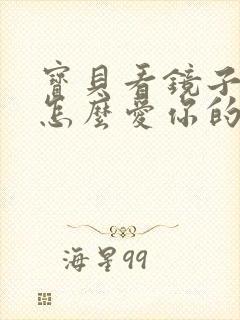 寶貝看鏡子
怎麼愛你的
海星99